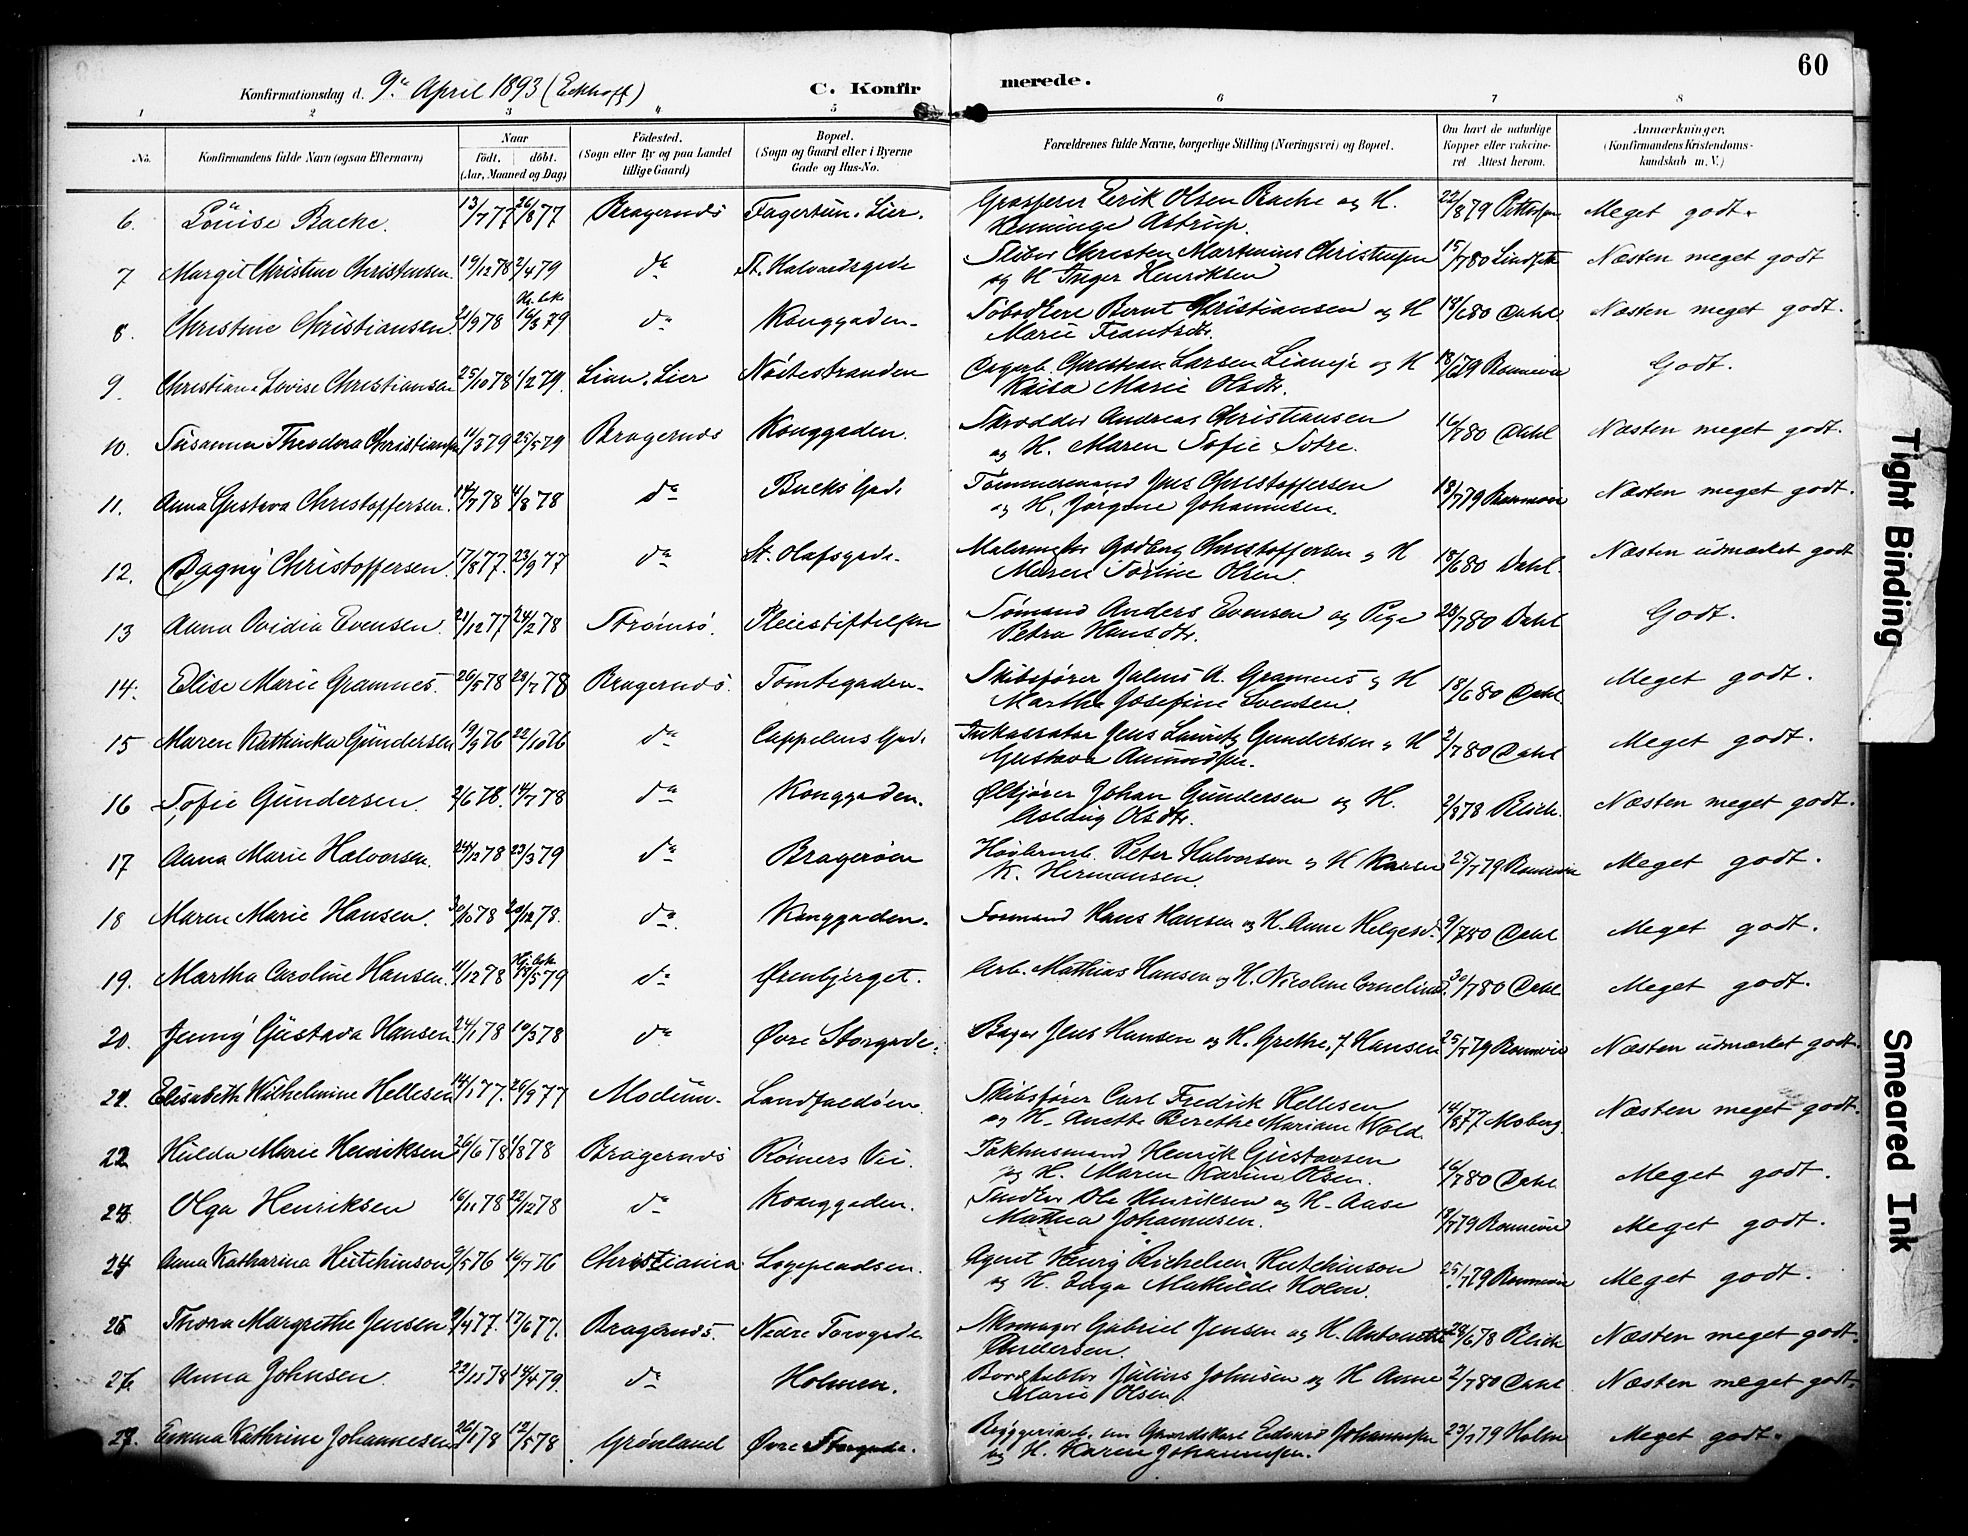 60
Konfirmationsdag d. 9de April 1893 (Eckhoff)
C. Konfirmerede.
1 2 3 4 5 6 7 8
No.
Konfirmandens fulde Navn (ogsaa Efternavn)
Naar
födt. döbt.
(Aar, Maaned og Dag)
Födested.
(Sogn eller By og paa Landet
tillige Gaard)
Bopæl.
(Sogn og Gaard eller i Byerne
Gade og Hus-No.
Forældrenes fulde Navne, borgerlige Stilling (Næringsvei) og Bopæl.
Om havt de naturlige
Kopper eller vakcine-
ret Attest herom.
Anmærkninger.
(Konfirmandens Kristendoms-
kundskab m. V.)
6. Louise Bache. 13/7 77 26/8 77 Bragernæs Fagertun. Lier. Grosserer Erik Olsen Bache og H. 22/8 79 Meget godt.
Henninge Astrup.
7 Margit Christine Christensen 19/12 78 2/4 79 da St. Halvardsgade Christen Martinius Christensen 15/7 80 Næsten meget godt
og H Inger Henriksen
8. Christine Christiansen 2/9 78 16/3 79 da Konggaden. Bernt Christiansen og H 18/6 80 Dahl. Næsten meget godt.
Marie Frantsdtr.
9. Christiane Lovise Christiansen 25/10 78 1/2 79. Lian, Lier Nöstestranden Dagarb. Christian Larsen Lianeje og H 18/6 79 Godt.
Kaisa Marie Olsdtr.
10. Susanna Theodora Christiansen 11/3 79 25/5 79 Bragernæs Konggaden. Skrædder Andreas Christiansen 16/7 80 Dahl Næsten meget godt.
og H. Maren Sofie Sotre.
11. Anna Gustava Christoffersen. 14/7 78 4/8 78 da Bucks Gade Tømmermand Jens Christoffersen 18/7 79 Næsten meget godt.
og H. Jørgine Johannesen.
12. Dagny Christoffersen. 17/8 77. 23/9 77 da St. Olafsgade. Malermester Godberg Christoffersen og H 18/6 80 Dahl. Næsten udmærket godt
Maren Torine Olsen.
13 Anna Ovidia Evensen. 21/12 77 24/2 78 Strömsö. Pleiestiftelsen Sømand Anders Evensen og Pige 28/7 80 Dahl Godt.
Petra Hansdtr.
14. Elise Marie Gramnes. 26/5 78 28/7 78 Bragernæs. Tomtegaden. Skibsfører Julius A. Gramenes og H 18/6 80 Dahl. Meget godt.
Marthe Josefine Svensen.
15 Maren Kathinka Gundersen 19/9 76 22/10 76 da Cappelens Gade Inkassator Jens Lauritz Gundersen og H 2/7 80 Dahl Meget godt.
Gustava Amundsen.
16 Sofie Gundersen. 2/6 78. 14/7 78 da Konggaden. Ølkjører Johan Gundersen og H. 2/8 78 Blich. Næsten meget godt.
Aslaug Olsdtr.
17 Anna Marie Halvorsen. 24/12 78 23/3 79 da Bragerøen Høvlerarb. Peter Halvorsen og H Karen 25/7 79 Meget godt.
K. Hermansen.
18 Maren Marie Hansen. 30/10 78 28/12 78. da Konggaden. Formand Hans Hansen og H. Anne Helgesd. 9/7 80 Dahl Meget godt.
19. Martha Caroline Hansen. 11/12 78 18/5 79 da Ørenbjerget. Arb. Mathias Hansen og H. Nicoline Cornelius. 30/7 80 Dahl Meget godt.
20. Jenny Gustava Hansen 24/1 78 10/3 78 da Øvre Storgade. Bager Jens Hansen og H. Grethe, f. Hansen 25/7 79 Næsten udmærket godt.
21. Elisabeth Wilhelmine Hellesen 14/1 77. 26/9 77 Modum. Landfaldöen. Skibsfører Carl Fredrik Hellesen 14/8 77 Moberg. Næsten meget godt.
og H. Anette Berethe Mariane Wold.
22 Hilda Marie Henriksen 26/6 78 1/8 78 Bragernæs Römers Vei. Pakhusmand Henrik Gustavsen 16/7 80 Dahl Meget godt.
og H. Maren Karine Olsen.
23. Olga Henriksen 16/11 78 22/12 78 da Konggaden. Snedker Ole Henriksen og H. Aase 18/7 79 Meget godt.
Mathea Johannesen.
24 Anna Katharina Hutchinson 9/5 76 16/7 76 Christiania Løgpladsen. Agent Henry Richelsen Hutchinson 25/7 79 Meget godt.
og H. Inga Mathilde Holm.
25 Thora Margrethe Jensen 9/4 77. 17/6 77. Bragernæs. Nedre Torvgade Skomager Gabriel Jensen og H. Antonette 28/6 78 Blich Næsten meget godt.
Andersen.
26. Anna Johnsen. 22/11 78 14/4 79. da Holmen. Bordstabler Julius Johnsen og H Anne 2/7 80 Dahl. Næsten meget godt.
Marie Olsen.
27. Emma Kathrine Johannesen 26/1 78 12/5 78 Grönland Øvre Storgade. Bryggeriarb. Edvard Johannesen 23/7 79 Holm Meget godt.
og H. Karen Johannesen.
Tight Binding
Smeared Ink